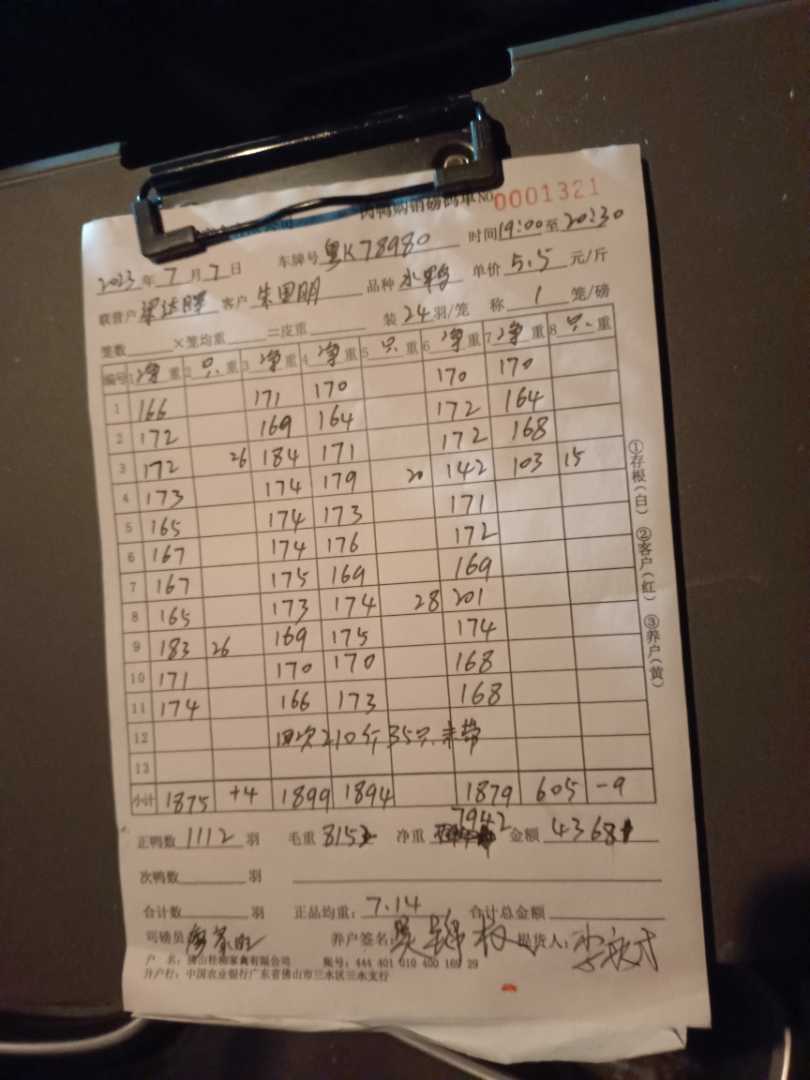 磅码单 NO 0001321
2023 年 7 月 7 日 车牌号 粤K78980 时间 19:00 至 20:30
联营户 客户 朱国明 品种 水鸭 单价 5.5 元/斤
笼数 ×笼均重 =皮重 装 24 羽/笼 称 1 笼/磅
编号 1 净重 2 只重 3 净重 4 净重 5 只重 6 净重 7 净重 8 只重
1 166 171 170 170 170
2 172 169 164 172 164
3 172 26 184 171 172 168
4 173 174 179 20 142 103 15
5 165 174 173 171
6 167 174 176 172
7 167 175 169 169
8 165 173 174 28 201
9 183 26 169 175 174
10 171 170 170 168
11 174 166 173 168
12 210斤 35只
13
小计 1875 +4 1899 1894 1879 605 -9
正鸭数 1112 羽 毛重 8152 净重 7942 金额 43681
次鸭数 羽
合计数 羽 正品均重: 7.14 合计总金额
司磅员 养户签名 提货人:
户 名: 佛山桂柳家禽有限公司 账号: 444 401 010 400 169 29
开户行: 中国农业银行广东省佛山市三水区三水支行
①存根(白) ②客户(红) ③养户(黄)